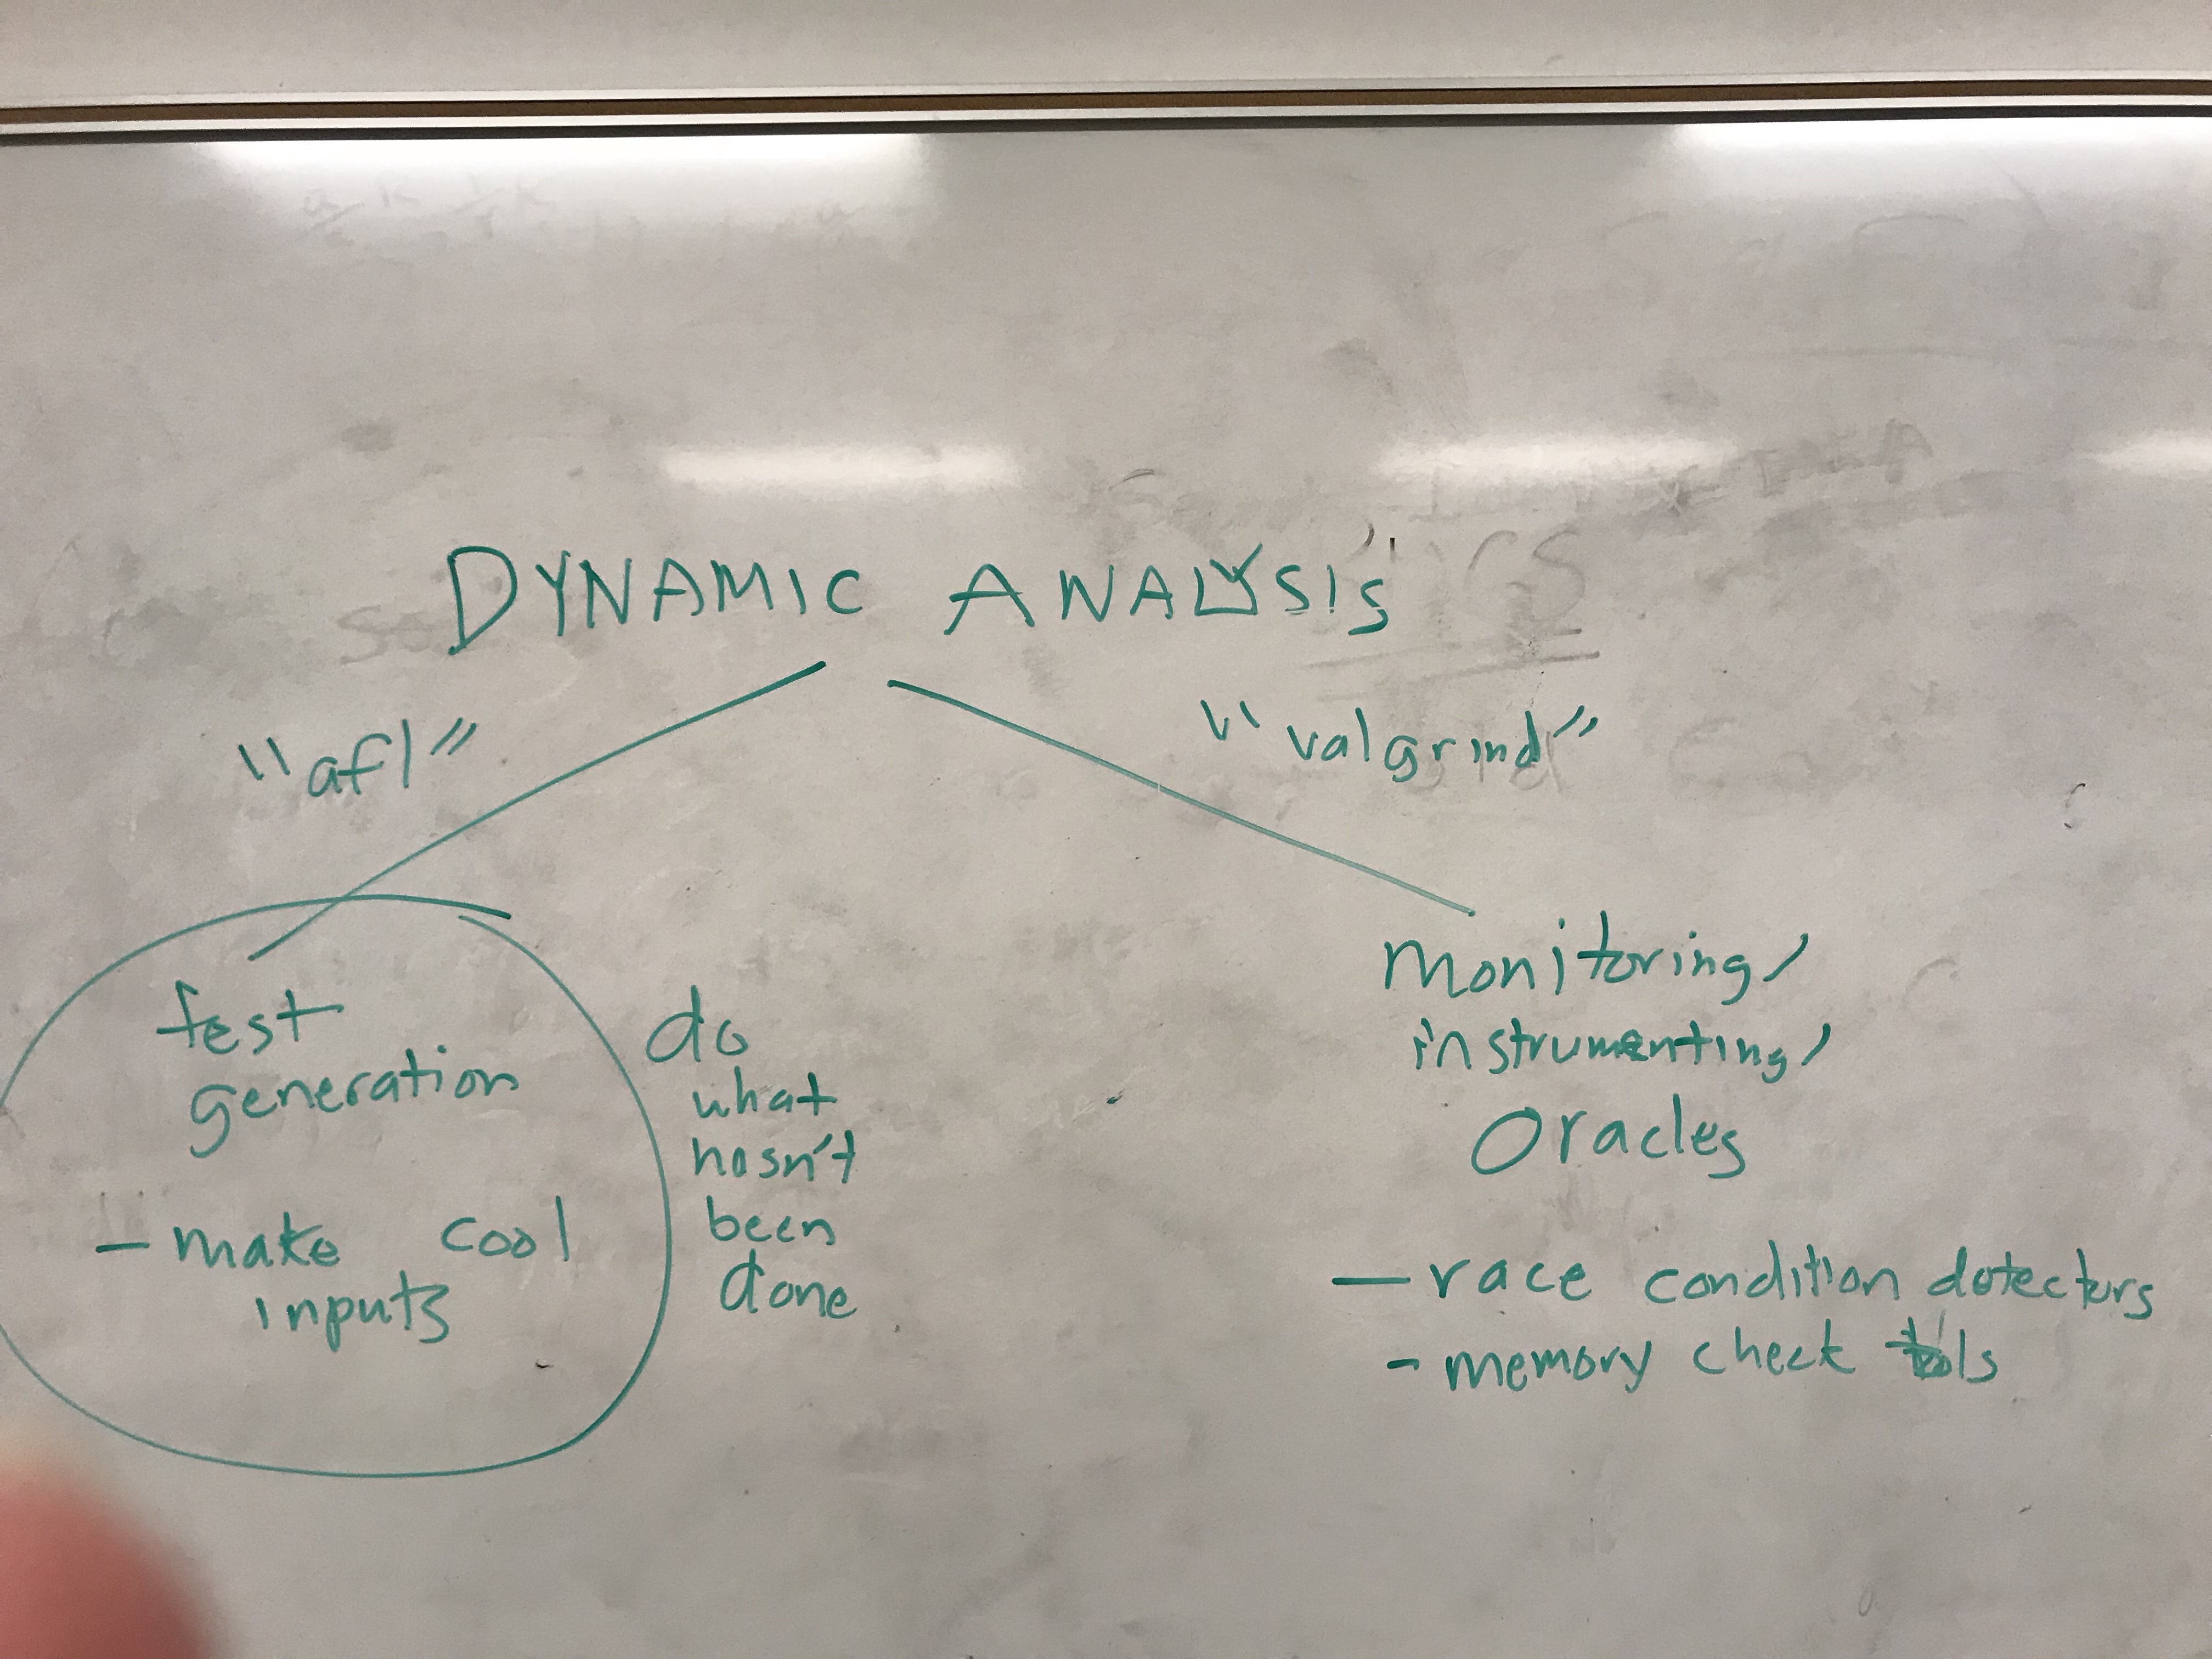 DYNAMIC ANALYSIS
"afl"
"valgrind"
test
generation
- make cool
inputs
do
what
hasn't
been
done
monitoring/
instrumenting/
Oracles
- race condition detectors
- memory check tools